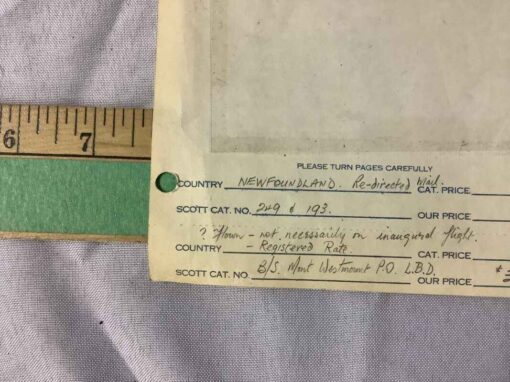 6 7
PLEASE TURN PAGES CAREFULLY
COUNTRY NEWFOUNDLAND. Re-directed Mail. CAT. PRICE
SCOTT CAT. NO. 249 & 193. OUR PRICE
? Flown - not necessarily on inaugural flight.
COUNTRY - Registered Rate CAT. PRICE
SCOTT CAT. NO. B/S. Mont Westmount P.O. L.B.D. $
OUR PRICE